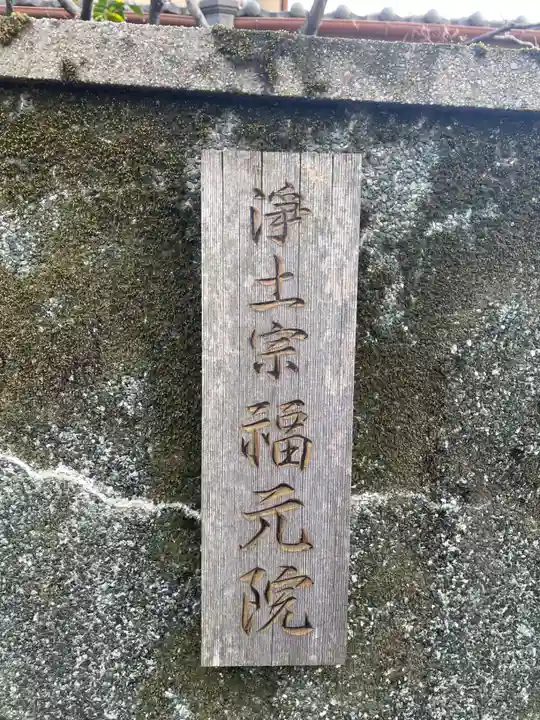 浄土宗福元院